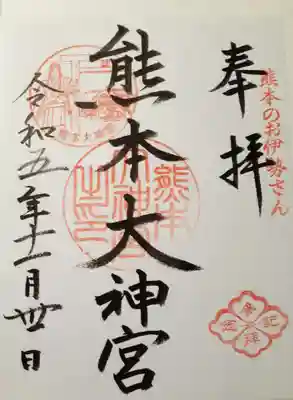 熊本のお伊勢さん
奉拝
熊本大神宮
令和五年十一月卅日
熊本大神宮之印
参拝記念